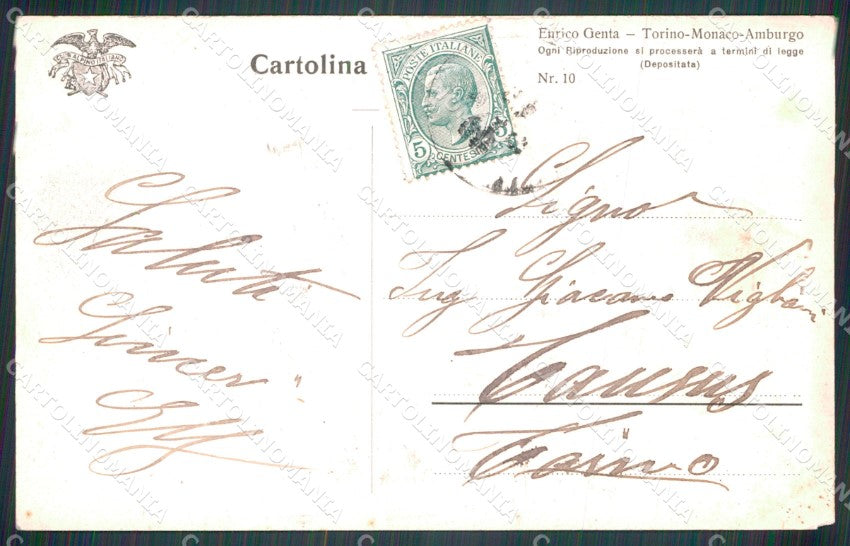 CLUB ALPINO ITALIANO
Cartolina
Enrico Genta — Torino-Monaco-Amburgo
Ogni Riproduzione si processerà a termini di legge
(Depositata)
Nr. 10
POSTE ITALIANE
5 CENTESIMI 5
Saluti
Sinceri
Signor
Ing Giacomo Vigliani
Torino
CARTOLINOMANIA